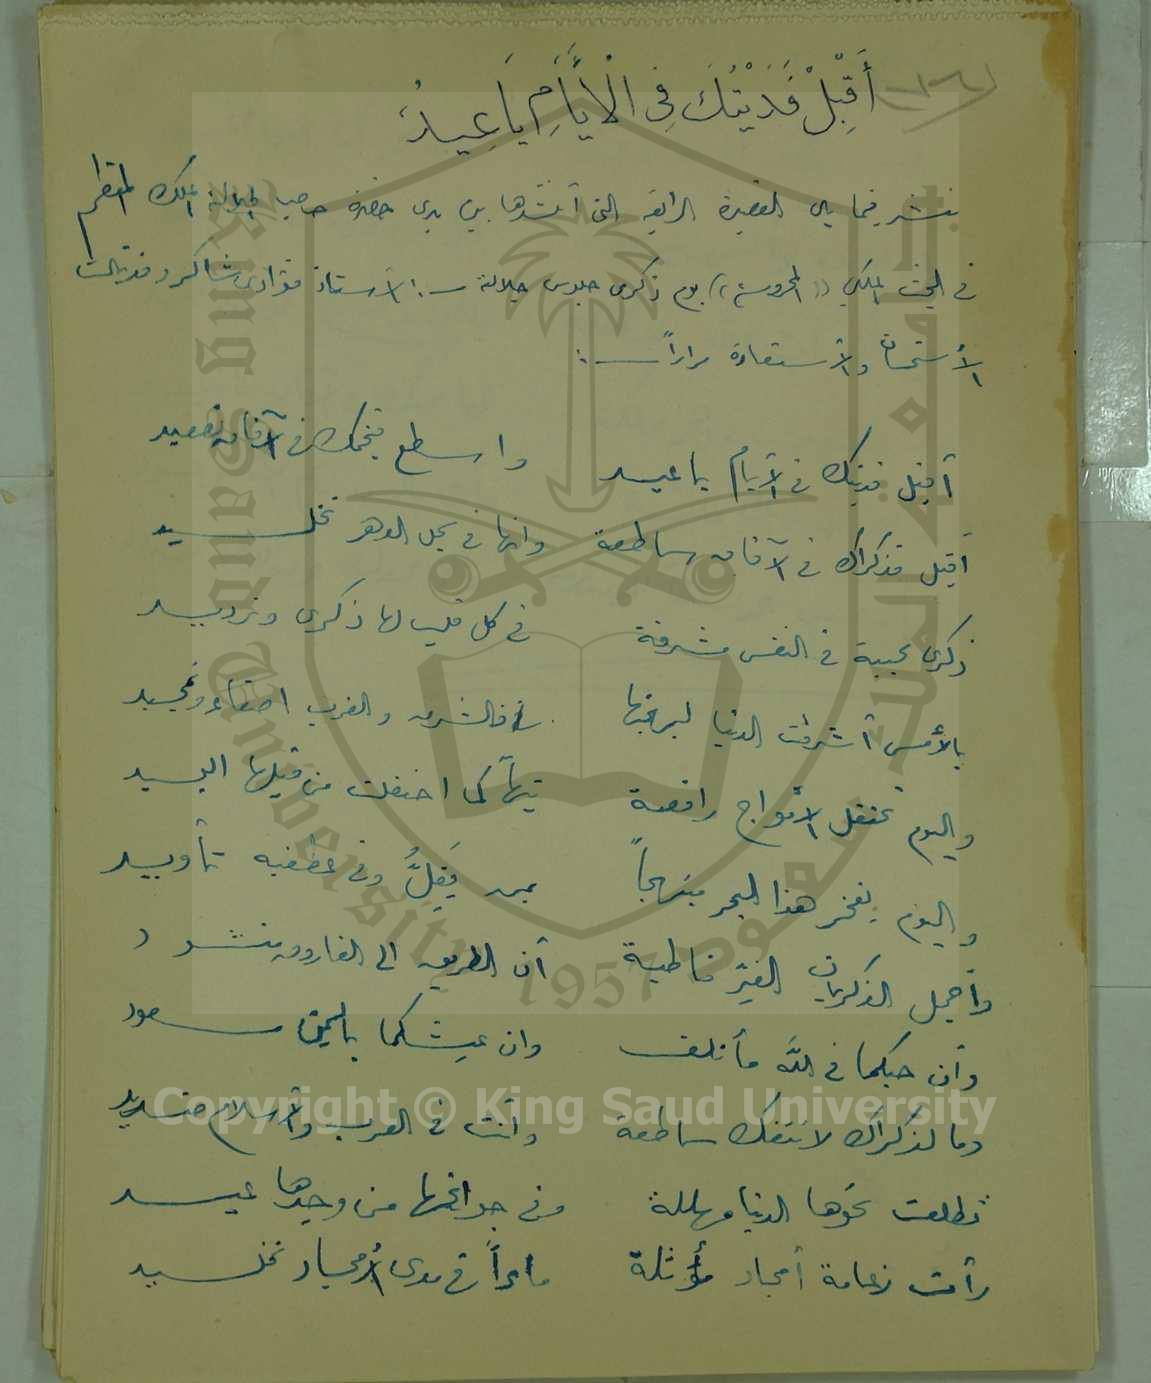 -١٣٦-
أَقْبِلْ فَدَيْتُكَ فِى الْأَيَّامِ يَا عِيدُ
ننشر فيما يلى القصيدة الرائعة التى أنشدها بين يدى حضرة صاحب الجلالة الملك المعظم
فى اليخت الملكى ((المحروسة)) يوم ذكرى جلوس جلالته الأستاذ فؤاد شاكر وقد نالت
الأستحسان والأستعادة مراراً :
أقبل فديتك فى الأيام يا عيد واسطع فنجمك فى الآفاق تصعيد
أقبل فذكراك فى الآفاق ساطعة وانها فى سجل الدهر تخليد
ذكرى محببة فى النفس مشرقة فى كل قلب لها ذكرى وترديد
بالأمس أشرقت الدنيا لبرقها فالشرق والغرب اصغاء وتمجيد
واليوم تحتفل الأمواج راقصة تيهاً كما احتفلت من قبلها البيد
واليوم يفخر هذا البحر مبتهجاً بمن يَقِلُّ وفى عطفيه تأويد
وأجمل الذكريات الغيرّ خاطبة أن الطريق الى الفاروق منشود
وأن حبكما فى اللّه مأتلف وان عيشكما باليمن مسعود
وما لذكراك لا تنفك ساطعة وأنت فى العرب والأسلام صنديد
تطلعت نحوها الدنيا مهللة وفى جوانحها من وجدها عيد
رأت زعامة أمجاد مؤثلة فى مدى الأمجاد تخليد
Copyright © King Saud University
King Saud University
جامعة الملك سعود
1957